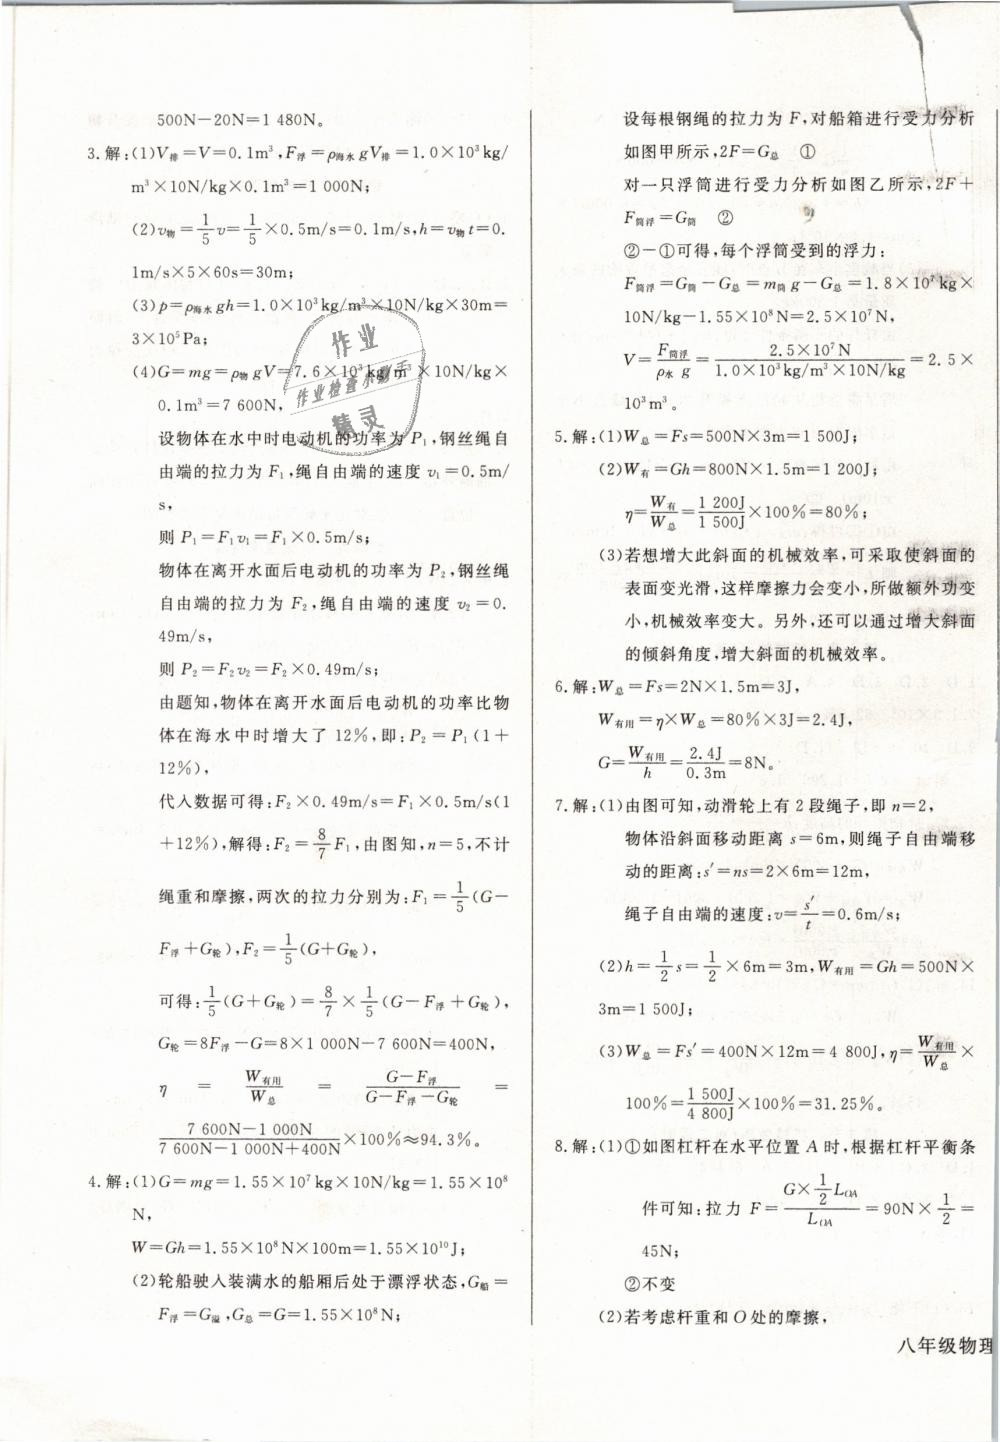 500N－20N＝1 480N。
3.解:(1)V排＝V＝0.1m³,F浮＝ρ海水gV排＝1.0×10³kg/
m³×10N/kg×0.1m³＝1 000N;
(2)v物＝1/5v＝1/5×0.5m/s＝0.1m/s,h＝v物t＝0.
1m/s×5×60s＝30m;
(3)p＝ρ海水gh＝1.0×10³kg/m³×10N/kg×30m＝
3×10⁵Pa;
(4)G＝mg＝ρ物gV＝7.6×10³kg/m³×10N/kg×
0.1m³＝7 600N,
设物体在水中时电动机的功率为P₁,钢丝绳自
由端的拉力为F₁,绳自由端的速度v₁＝0.5m/
s,
则P₁＝F₁v₁＝F₁×0.5m/s;
物体在离开水面后电动机的功率为P₂,钢丝绳
自由端的拉力为F₂,绳自由端的速度v₂＝0.
49m/s,
则P₂＝F₂v₂＝F₂×0.49m/s;
由题知,物体在离开水面后电动机的功率比物
体在海水中时增大了12%,即:P₂＝P₁(1＋
12%),
代入数据可得:F₂×0.49m/s＝F₁×0.5m/s(1
＋12%),解得:F₂＝8/7F₁,由图知,n＝5,不计
绳重和摩擦,两次的拉力分别为:F₁＝1/5(G－
F浮＋G轮),F₂＝1/5(G＋G轮),
可得:1/5(G＋G轮)＝8/7×1/5(G－F浮＋G轮),
G轮＝8F浮－G＝8×1 000N－7 600N＝400N,
η＝W有用/W总＝(G－F浮)/(G－F浮－G轮)＝
(7 600N－1 000N)/(7 600N－1 000N＋400N)×100%≈94.3%。
4.解:(1)G＝mg＝1.55×10⁷kg×10N/kg＝1.55×10⁸
N,
W＝Gh＝1.55×10⁸N×100m＝1.55×10¹⁰J;
(2)轮船驶入装满水的船厢后处于漂浮状态,G船＝
F浮＝G溢,G总＝G＝1.55×10⁸N;
设每根钢绳的拉力为F,对船箱进行受力分析
如图甲所示,2F＝G总 ①
对一只浮筒进行受力分析如图乙所示,2F＋
F筒浮＝G筒 ②
②－①可得,每个浮筒受到的浮力:
F筒浮＝G筒－G总＝m筒g－G总＝1.8×10⁷kg×
10N/kg－1.55×10⁸N＝2.5×10⁷N,
V＝F筒浮/ρ水g＝2.5×10⁷N/(1.0×10³kg/m³×10N/kg)＝2.5×
10³m³。
5.解:(1)W总＝Fs＝500N×3m＝1 500J;
(2)W有＝Gh＝800N×1.5m＝1 200J;
η＝W有/W总＝1 200J/1 500J×100%＝80%;
(3)若想增大此斜面的机械效率,可采取使斜面的
表面变光滑,这样摩擦力会变小,所做额外功变
小,机械效率变大。另外,还可以通过增大斜面
的倾斜角度,增大斜面的机械效率。
6.解:W总＝Fs＝2N×1.5m＝3J,
W有用＝η×W总＝80%×3J＝2.4J,
G＝W有用/h＝2.4J/0.3m＝8N。
7.解:(1)由图可知,动滑轮上有2段绳子,即n＝2,
物体沿斜面移动距离s＝6m,则绳子自由端移
动的距离:s′＝ns＝2×6m＝12m,
绳子自由端的速度:v＝s′/t＝0.6m/s;
(2)h＝1/2s＝1/2×6m＝3m,W有用＝Gh＝500N×
3m＝1 500J;
(3)W总＝Fs′＝400N×12m＝4 800J,η＝W有用/W总×
100%＝1 500J/4 800J×100%＝31.25%。
8.解:(1)①如图杠杆在水平位置A时,根据杠杆平衡条
件可知:拉力F＝(G×1/2L_OA)/L_OA＝90N×1/2＝
45N;
②不变
(2)若考虑杆重和O处的摩擦,
八年级物理
作业
作业检查小助手
精灵